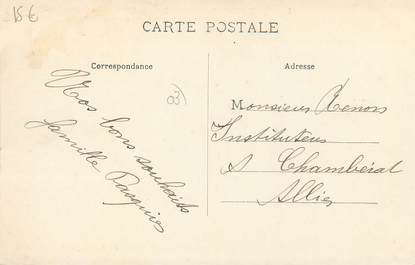 15 €
CARTE POSTALE
Correspondance
Adresse
03
Nos bons souhaits
famille Pasquier
Monsieur Xenon
Instituteur
A Chambérat
Allier